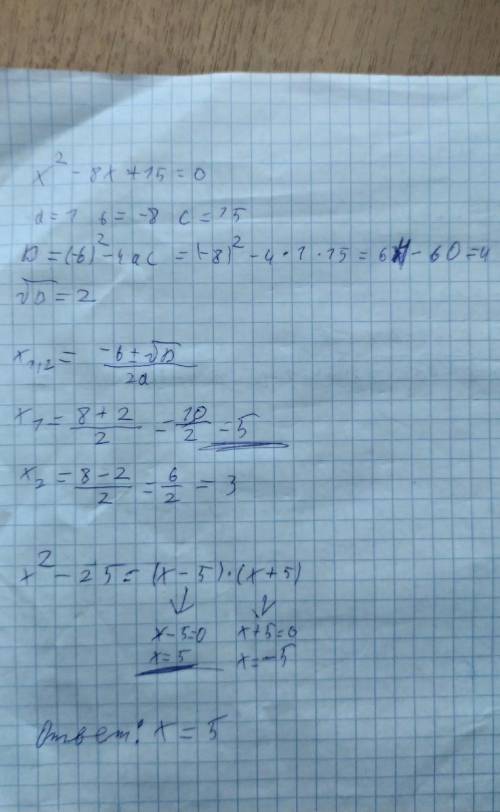 x² - 8x + 15 = 0
a = 1 b = -8 c = 15
D = (-b)² - 4ac = (-8)² - 4 · 1 · 15 = 64 - 60 = 4
√D = 2
x₁,₂ = (-b ± √D) / 2a
x₁ = (8 + 2) / 2 = 10 / 2 = 5
x₂ = (8 - 2) / 2 = 6 / 2 = 3
x² - 25 = (x - 5) · (x + 5)
x - 5 = 0 x + 5 = 0
x = 5 x = -5
Ответ: x = 5